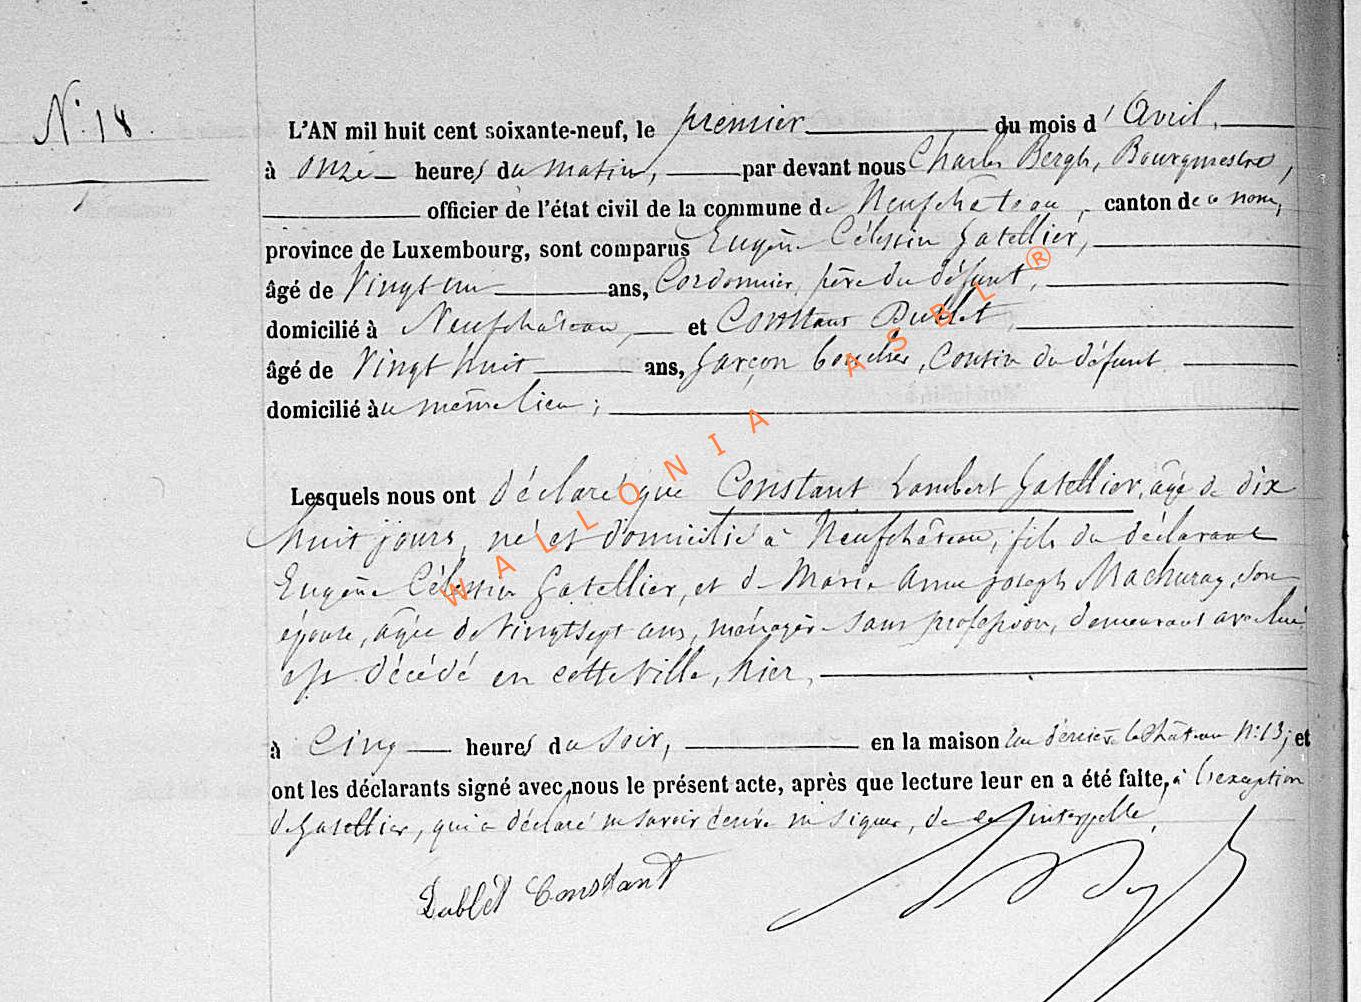 N. 18.
L'AN mil huit cent soixante-neuf, le premier du mois d'Avril,
à onze heures du matin, par devant nous Charles Bergh, Bourgmestre,
officier de l'état civil de la commune de Neufchâteau, canton de ce nom,
province de Luxembourg, sont comparus Eugène Célestin Gatellier,
âgé de Vingt un ans, Cordonnier, père du défunt,
domicilié à Neufchâteau, et Constant Dublet,
âgé de Vingt huit ans, garçon boucher, Cousin du défunt
domicilié au même lieu;
Lesquels nous ont déclaré que Constant Lambert Gatellier, âgé de dix
huit jours, né et domicilié à Neufchâteau, fils du déclarant
Eugène Célestin Gatellier, et de Marie Anne Joseph Machuray, son
épouse, âgée de Vingt sept ans, ménagère sans profession, demeurant avec lui
est décédé en cette Ville, hier,
à Cinq heures du soir, en la maison rue derrière le Château N: 13; et
ont les déclarants signé avec nous le présent acte, après que lecture leur en a été faite, à l'exception
de Gatellier, qui a déclaré ne savoir écrire ni signer, de ce interpellé.
Dublet Constant
WALLONIA ASBL ®